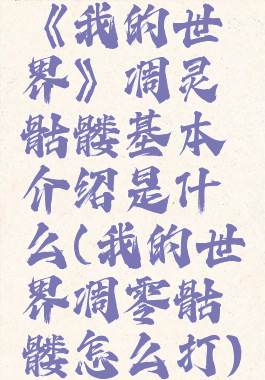 《我的世
界》凋灵
骷髅基本
介绍是什
么(我的世
界凋零骷
髅怎么打)